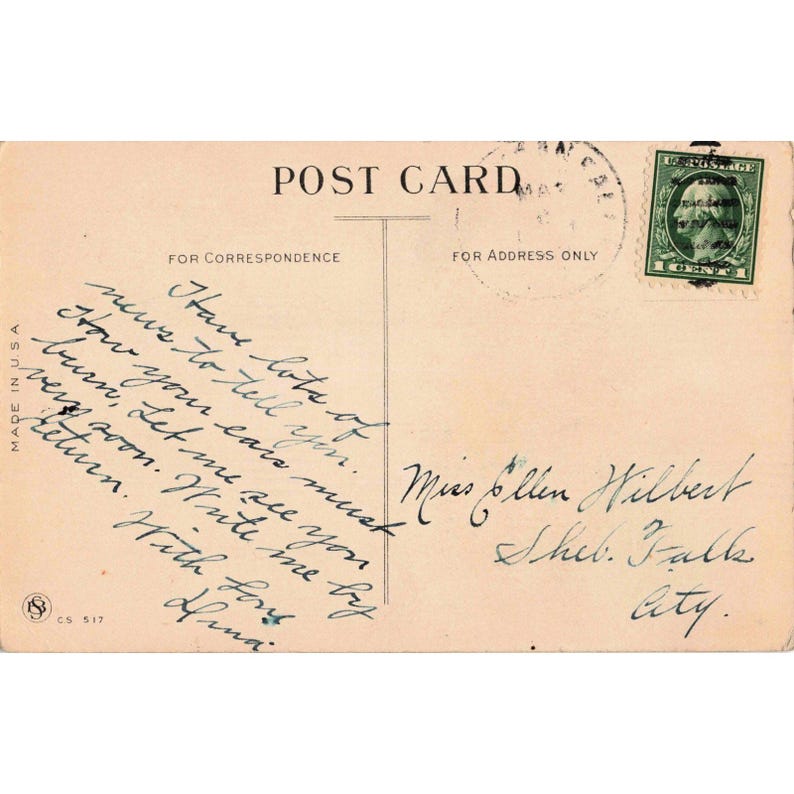 POST CARD
FOR CORRESPONDENCE
FOR ADDRESS ONLY
U.S. POSTAGE
1 CENT 1
MADE IN U.S.A
Have lots of
news to tell you.
How your ears must
burn, Let me see you
very soon. Write me by
return.
With Love
Miss Ellen Wilbert
Sheb. Falls
City.
CS 517